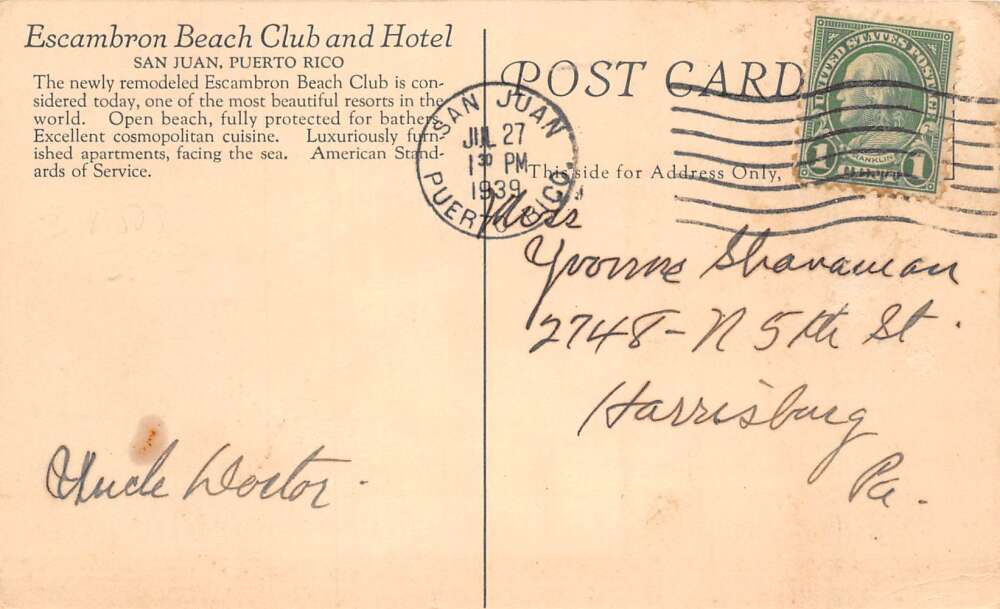 Escambron Beach Club and Hotel
SAN JUAN, PUERTO RICO
The newly remodeled Escambron Beach Club is con-
sidered today, one of the most beautiful resorts in the
world. Open beach, fully protected for bathers.
Excellent cosmopolitan cuisine. Luxuriously furn-
ished apartments, facing the sea. American Stand-
ards of Service.
Uncle Doctor.
POST CARD
This side for Address Only,
SAN JUAN
JUL 27
1 30 PM
1939
PUERTO RICO.
UNITED STATES POSTAGE
1 FRANKLIN 1
Miss
Yvonne Shavaman
2748-N 5th St.
Harrisburg
Pa.